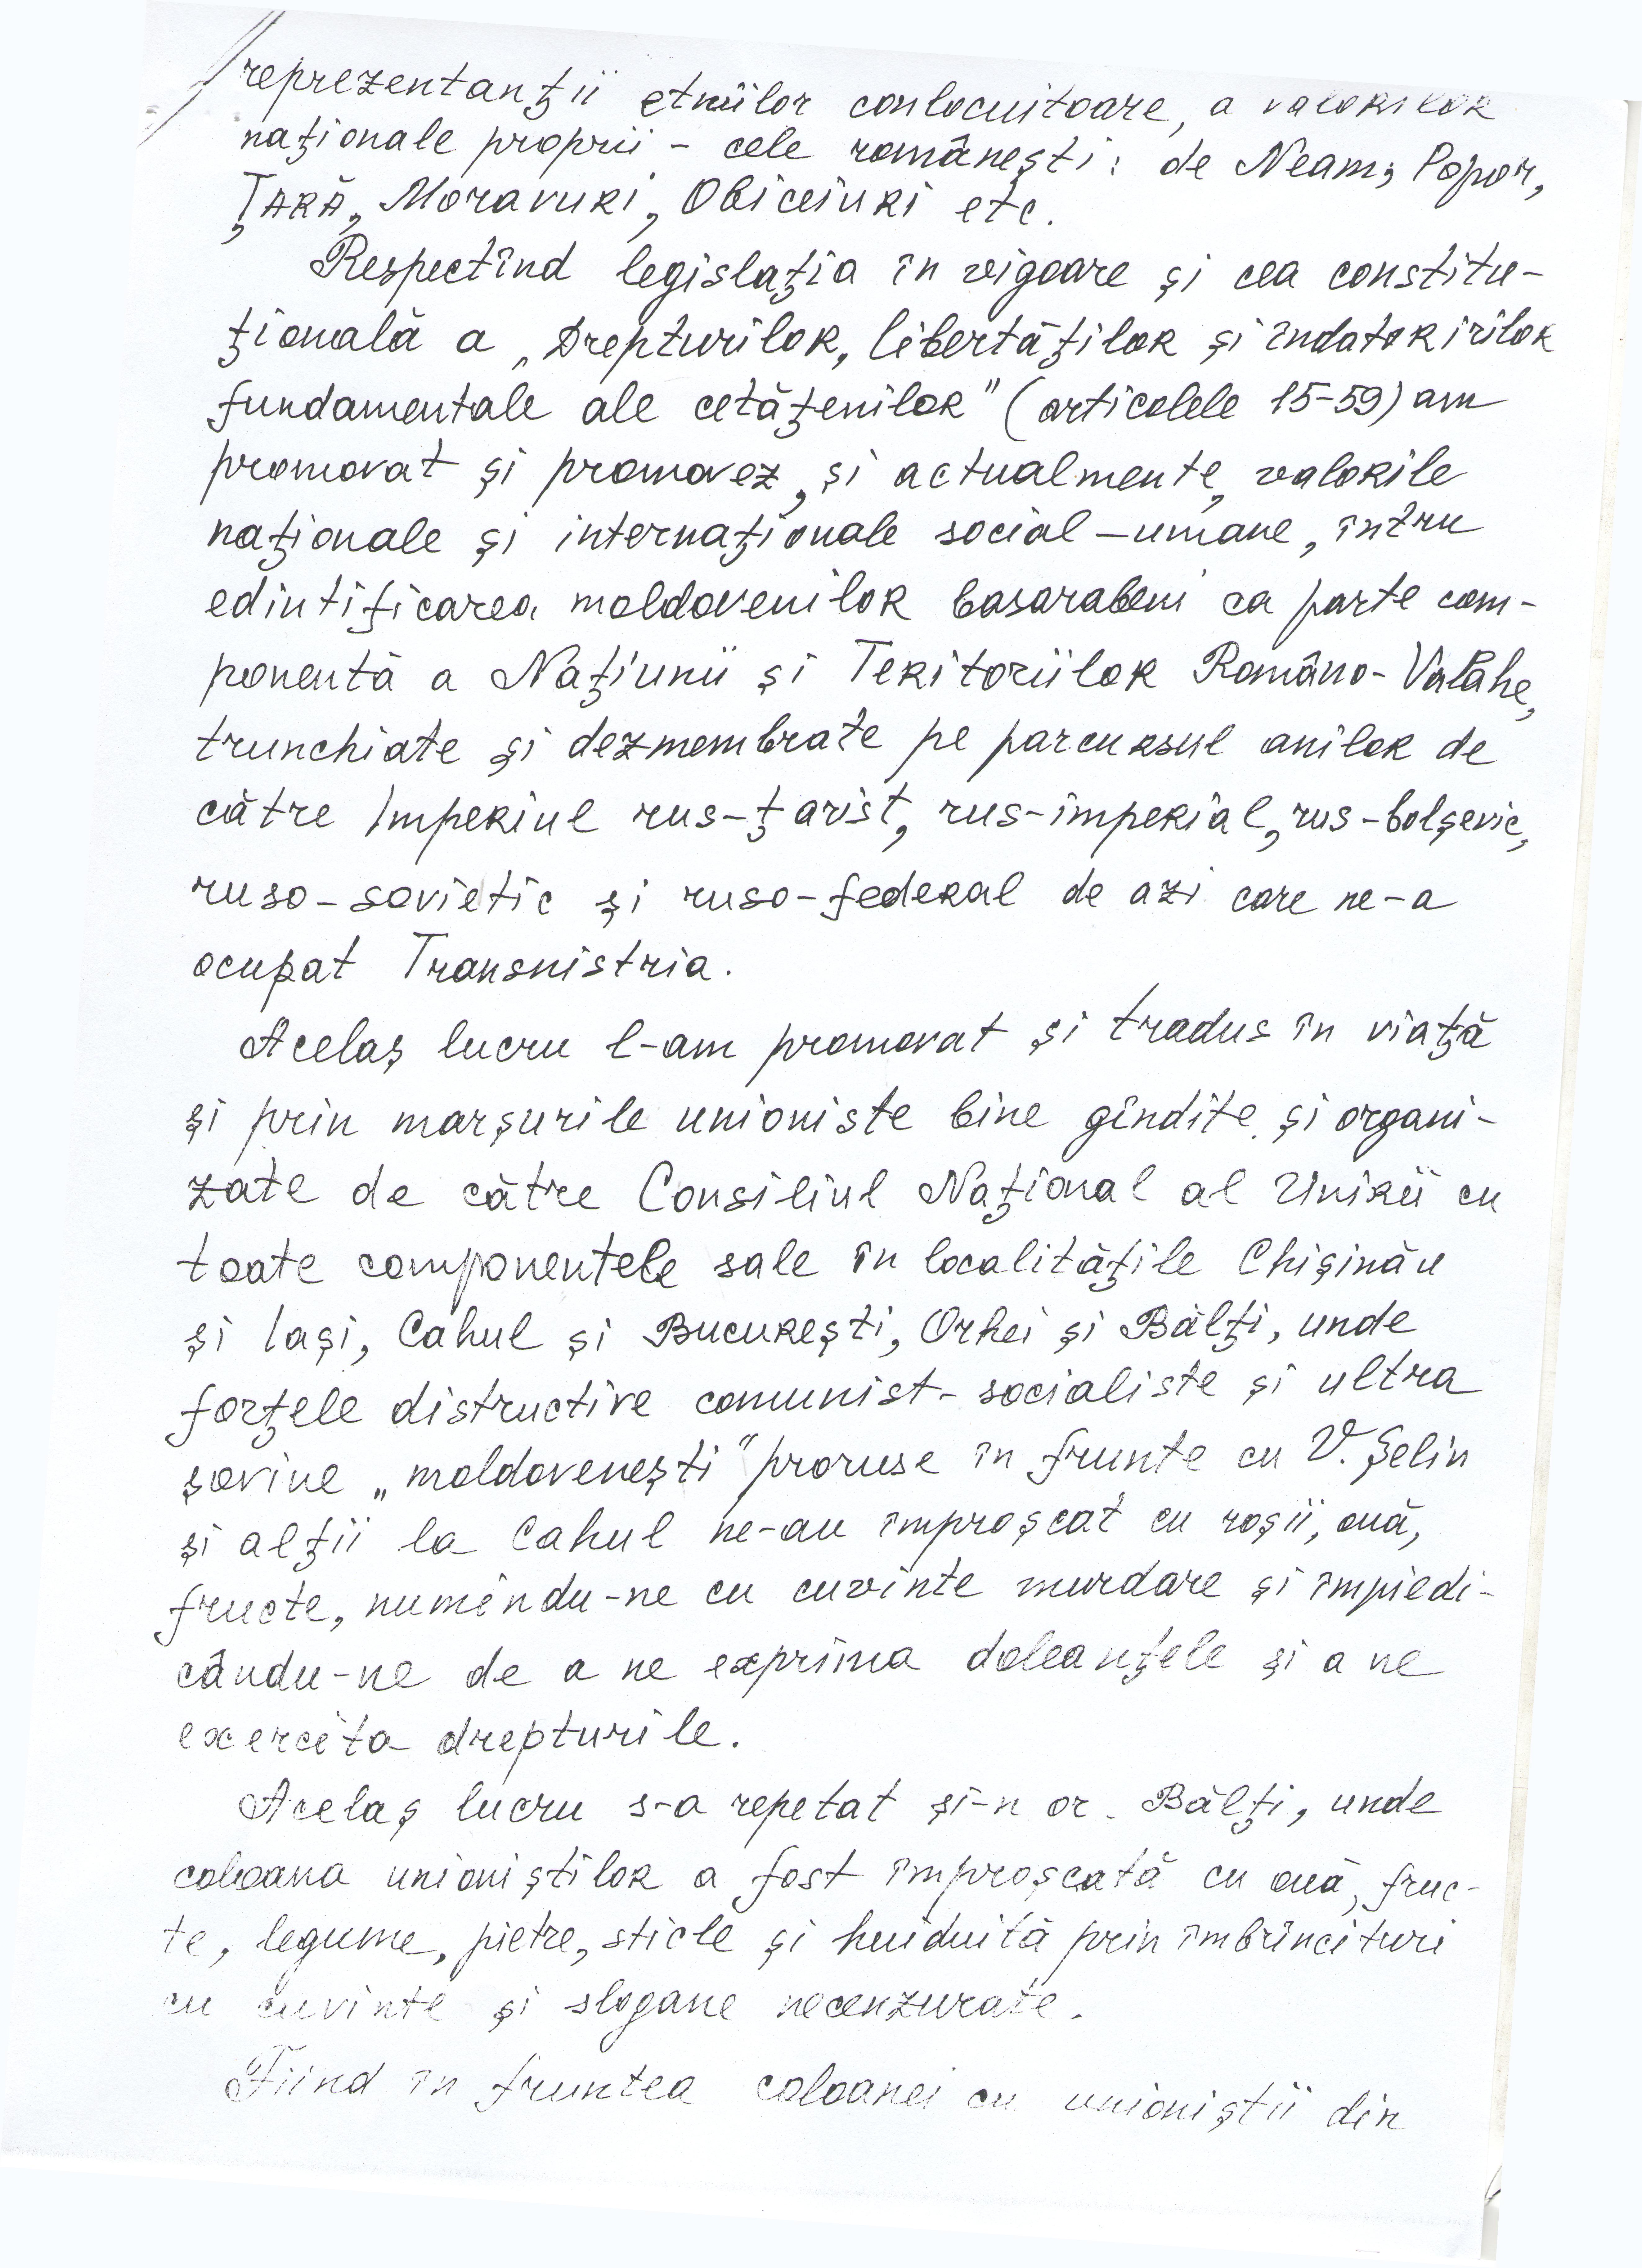 reprezentanţii etniilor conlocuitoare, a valorilor
naţionale proprii - cele româneşti: de Neam, Popor,
ŢARĂ, Moravuri, Obiceiuri etc.
Respectînd legislaţia în vigoare şi cea constitu-
ţională a „Drepturilor, libertăţilor şi îndatoririlor
fundamentale ale cetăţenilor" (articolele 15-59) am
promovat şi promovez, şi actualmente, valorile
naţionale şi internaţionale social-umane, întru
edintificarea moldovenilor basarabeni ca parte com-
ponentă a Naţiunii şi Teritoriilor Româno-Valahe,
trunchiate şi dezmembrate pe parcursul anilor de
către Imperiul rus-ţarist, rus-imperial, rus-bolşevic,
ruso-sovietic şi ruso-federal de azi care ne-a
ocupat Transnistria.
Acelaş lucru l-am promovat şi tradus în viaţă
şi prin marşurile unioniste bine gîndite şi organi-
zate de către Consiliul Naţional al Unirii cu
toate componentele sale în localităţile Chişinău
şi Iaşi, Cahul şi Bucureşti, Orhei şi Bălţi, unde
forţele distructive comunist-socialiste şi ultra
şovine „moldoveneşti" proruse în frunte cu V. Şelin
şi alţii la Cahul ne-au împroşcat cu roşii, ouă,
fructe, numindu-ne cu cuvinte murdare şi împiedi-
cându-ne de a ne exprima doleanţele şi a ne
exercita drepturile.
Acelaş lucru s-a repetat şi-n or. Bălţi, unde
coloana unioniştilor a fost împroşcată cu ouă, fruc-
te, legume, pietre, sticle şi huiduită prin îmbrîncituri
cu cuvinte şi slogane necenzurate.
Fiind în fruntea coloanei cu unioniştii din